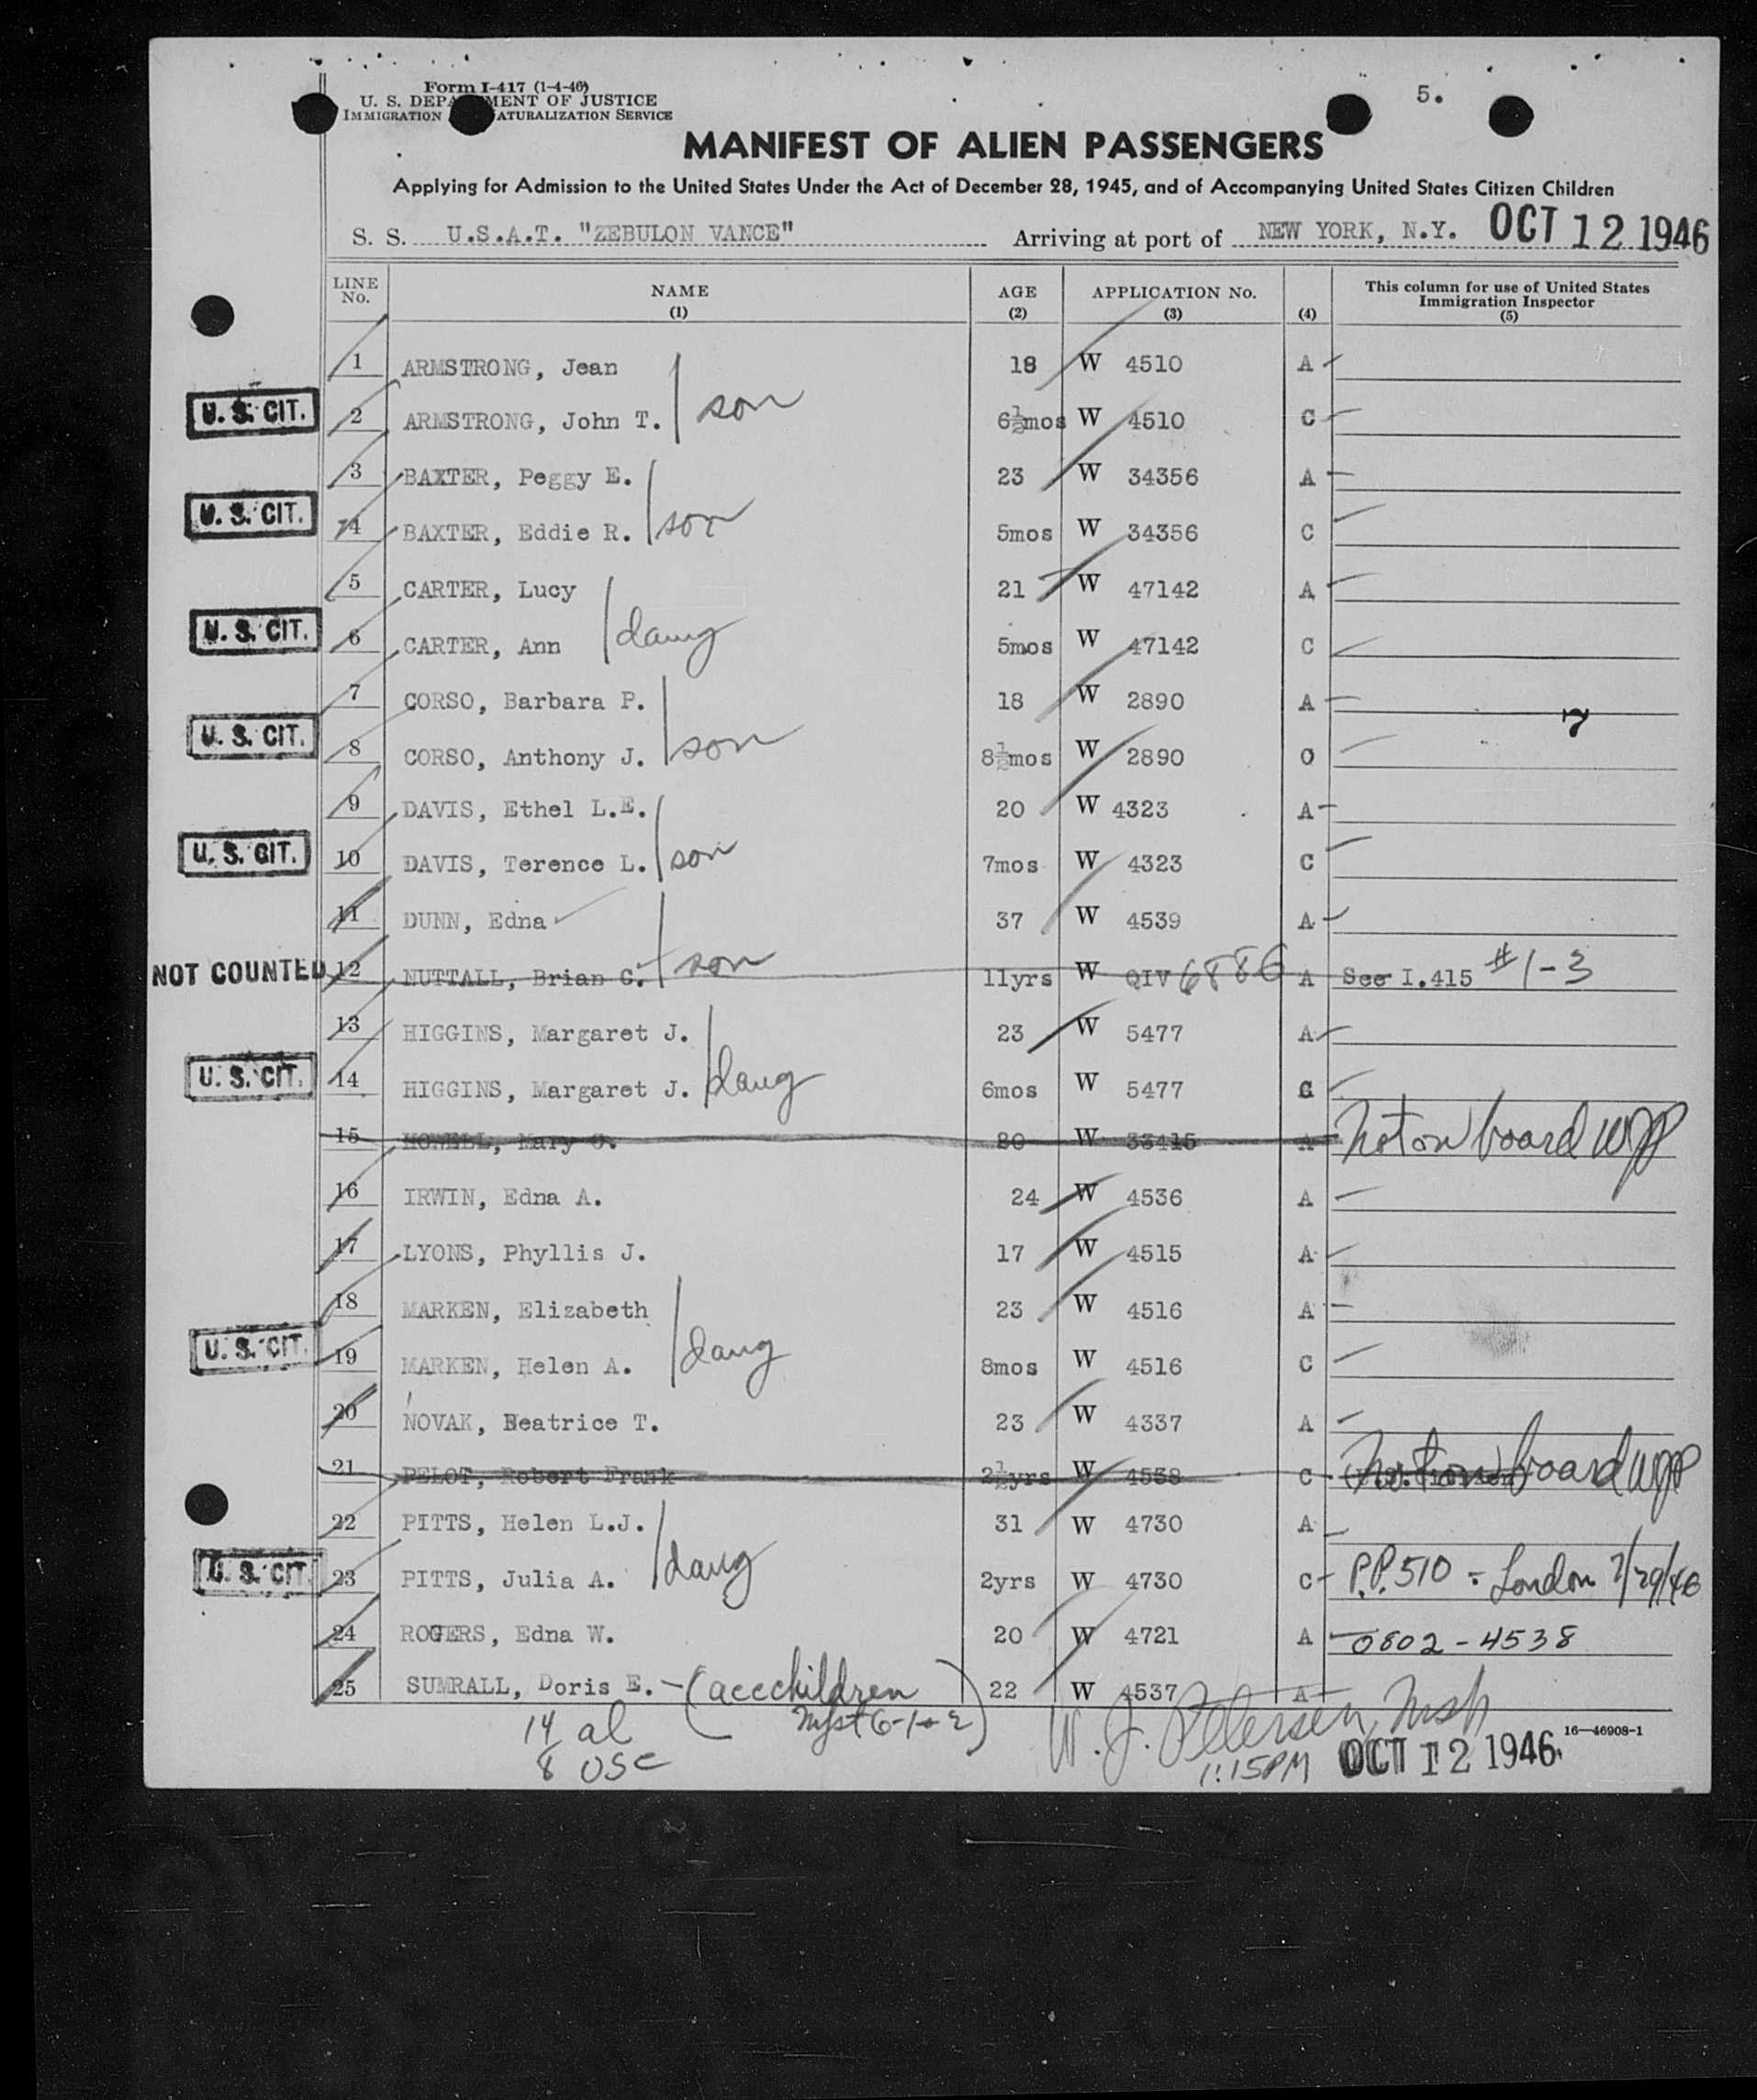 Form I-417 (1-4-46)
5.
U. S. DEPA MENT OF JUSTICE
IMMIGRATION ATURALIZATION SERVICE
MANIFEST OF ALIEN PASSENGERS
Applying for Admission to the United States Under the Act of December 28, 1945, and of Accompanying United States Citizen Children
S. S. U.S.A.T. "ZEBULON VANCE" Arriving at port of NEW YORK, N.Y. OCT 12 1946
LINE No. NAME (1) AGE (2) APPLICATION No. (3) (4) This column for use of United States Immigration Inspector (5)
1 ARMSTRONG, Jean 18 W 4510 A
U. S. CIT. 2 ARMSTRONG, John T. son 6½mos W 4510 C
3 BAXTER, Peggy E. 23 W 34356 A
U. S. CIT. 4 BAXTER, Eddie R. son 5mos W 34356 C
5 CARTER, Lucy 21 W 47142 A
U. S. CIT. 6 CARTER, Ann daug 5mos W 47142 C
7 CORSO, Barbara P. 18 W 2890 A
7
U. S. CIT. 8 CORSO, Anthony J. son 8½mos W 2890 C
9 DAVIS, Ethel L.E. 20 W 4323 A
U. S. CIT. 10 DAVIS, Terence L. son 7mos W 4323 C
11 DUNN, Edna 37 W 4539 A
NOT COUNTED 12 NUTTALL, Brian C. son 11yrs W QIV 6886 A See I.415 #1-3
13 HIGGINS, Margaret J. 23 W 5477 A
U. S. CIT. 14 HIGGINS, Margaret J. daug 6mos W 5477 C
15 HOWELL, Mary W 33415 A Not on board WJP
16 IRWIN, Edna A. 24 W 4536 A
17 LYONS, Phyllis J. 17 W 4515 A
18 MARKEN, Elizabeth 23 W 4516 A
U. S. CIT. 19 MARKEN, Helen A. daug 8mos W 4516 C
20 NOVAK, Beatrice T. 23 W 4337 A
21 PELOT, Robert Frank 2½yrs W 4538 C Not on board WJP
22 PITTS, Helen L.J. 31 W 4730 A
U. S. CIT. 23 PITTS, Julia A. daug 2yrs W 4730 C P.P. 510 - London 7/29/46
24 ROGERS, Edna W. 20 W 4721 A 0802-4538
25 SUMRALL, Doris E. - (acc children 22 W 4537 A
Mfst 6-1+2)
14 al
8 USC
W. J. Petersen, Insp
1:15PM OCT 12 1946
16-46908-1